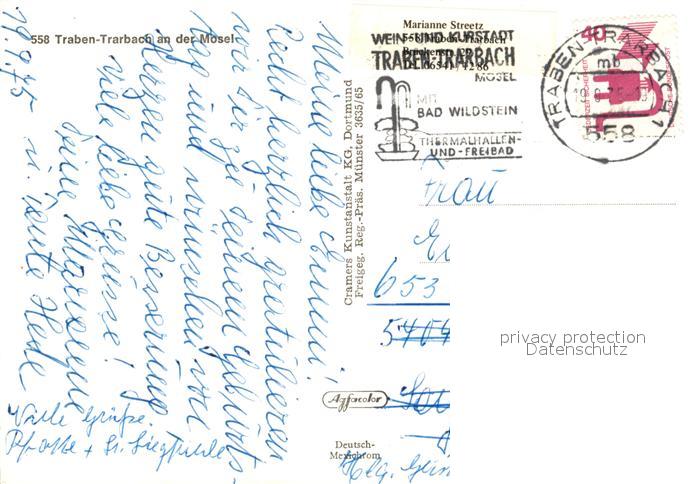 558 Traben-Trarbach an der Mosel
19.9.75
Meine liebe Emmi!
Recht herzlich gratulieren
wir Dir zu Deinem Geburts-
tag und wünschen von
Herzen gute Besserung
viele liebe Grüsse!
Deine Marianne
u. Tante Hede
Viele Grüße.
Cramers Kunstanstalt KG, Dortmund
Freigeg. Reg.-Präs. Münster 3635/65
Agfacolor
Deutsch-
Mexichrom
Marianne Streetz
558 Traben-Trarbach
WEIN- UND KURSTADT
TRABEN-TRARBACH
MOSEL
MIT
BAD WILDSTEIN
THERMALHALLEN-
UND-FREIBAD
40
TRABEN-TRARBACH 1
mb
558
Frau
653
privacy protection
Datenschutz